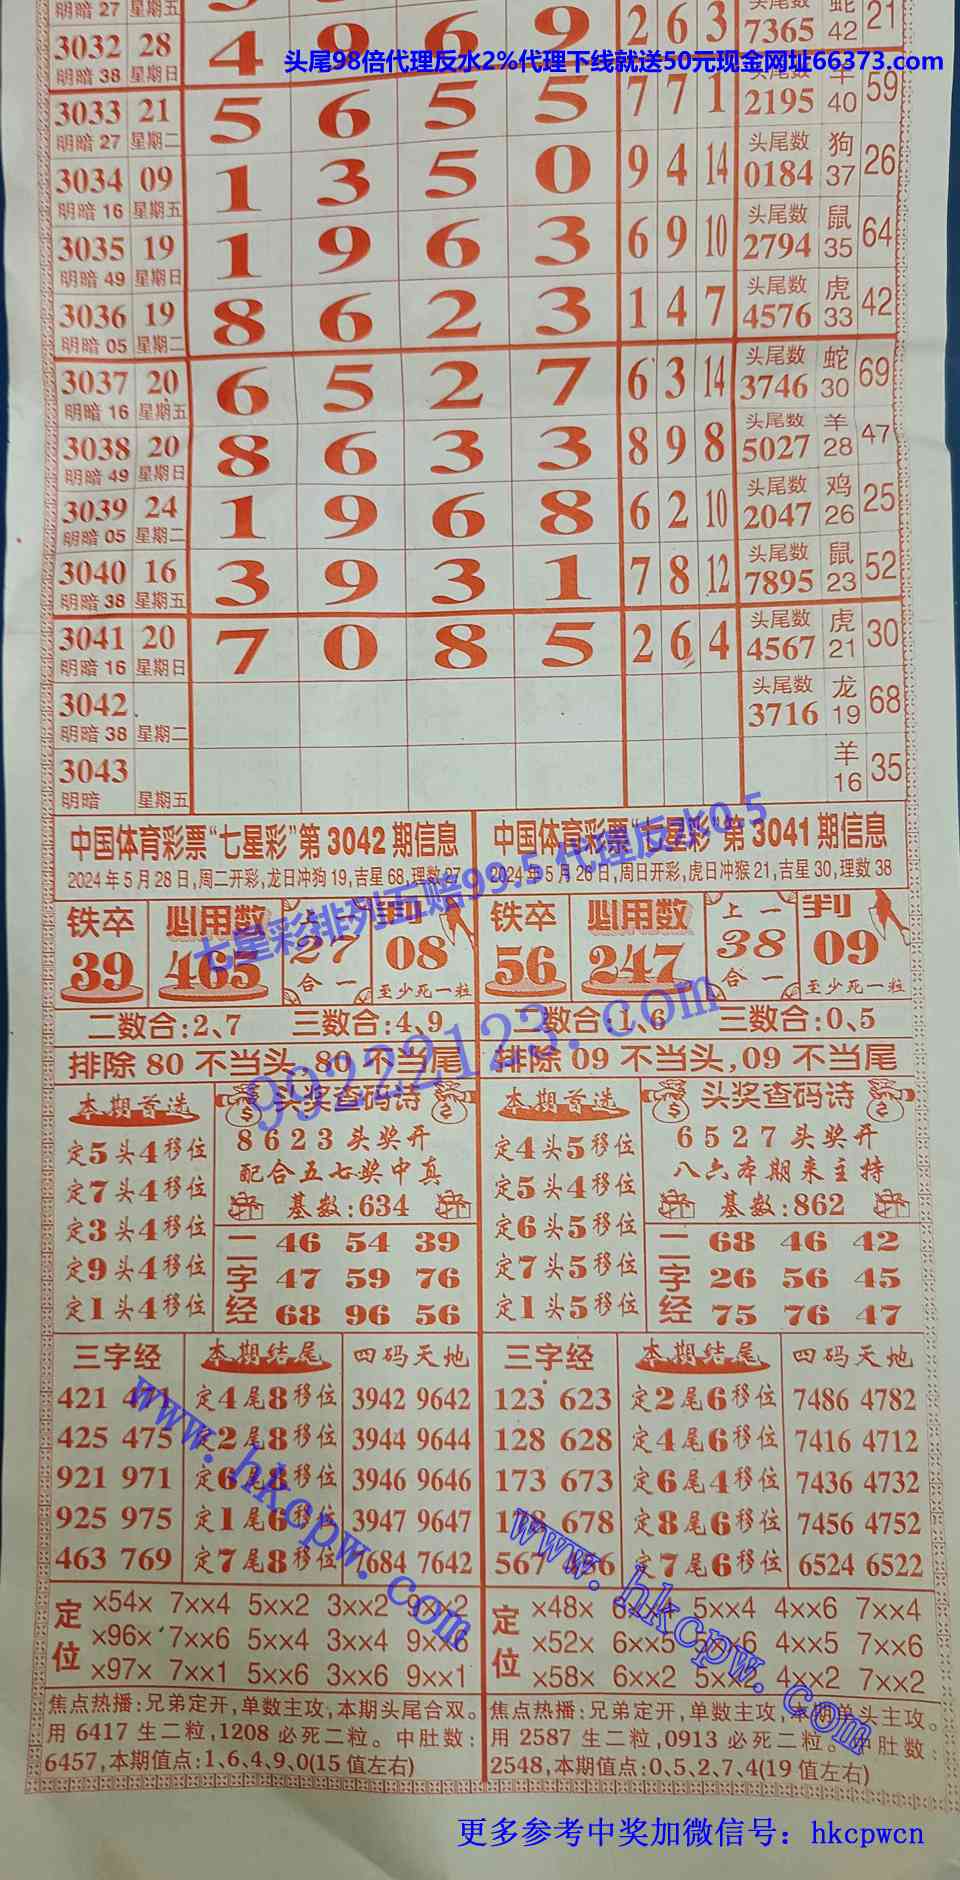 明暗 27 星期五 蛇 42 21
头尾98倍代理反水2%代理下线就送50元现金网址66373.com
3032 28 4 9 6 9 2 6 3 7365
明暗 38 星期日
3033 21 5 6 5 5 7 7 1 2195 40 59
明暗 27 星期二
3034 09 1 3 5 0 9 4 14 头尾数 0184 狗 37 26
明暗 16 星期五
3035 19 1 9 6 3 6 9 10 头尾数 2794 鼠 35 64
明暗 49 星期日
3036 19 8 6 2 3 1 4 7 头尾数 4576 虎 33 42
明暗 05 星期二
3037 20 6 5 2 7 6 3 14 头尾数 3746 蛇 30 69
明暗 16 星期五
3038 20 8 6 3 3 8 9 8 头尾数 5027 羊 28 47
明暗 49 星期日
3039 24 1 9 6 8 6 2 10 头尾数 2047 鸡 26 25
明暗 05 星期二
3040 16 3 9 3 1 7 8 12 头尾数 7895 鼠 23 52
明暗 38 星期五
3041 20 7 0 8 5 2 6 4 头尾数 4567 虎 21 30
明暗 16 星期日
3042 头尾数 3716 龙 19 68
明暗 38 星期二
3043 羊 16 35
明暗 星期五
中国体育彩票“七星彩”第 3042 期信息
2024 年 5 月 28 日,周二开彩,龙日冲狗 19,吉星 68,理数 27
铁卒 39 必用数 465 上一 27 合一 判 08 至少死一粒
二数合:2、7 三数合:4、9
排除 80 不当头,80 不当尾
本期首选
定5头4移位
定7头4移位
定3头4移位
定9头4移位
定1头4移位
头奖查码诗
8 6 2 3 头奖开
配合五七奖中真
基数:634
二字经
46 54 39
47 59 76
68 96 56
三字经
421 471
425 475
921 971
925 975
463 769
本期结尾
定4尾8移位
定2尾8移位
定6尾8移位
定1尾6移位
定7尾8移位
四码天地
3942 9642
3944 9644
3946 9646
3947 9647
7684 7642
定位
×54× 7××4 5××2 3××2 9××2
×96× 7××6 5××4 3××4 9××6
×97× 7××1 5××6 3××6 9××1
焦点热播:兄弟定开,单数主攻,本期头尾合双。
用 6417 生二粒,1208 必死二粒。中肚数:
6457,本期值点:1、6、4、9、0(15 值左右)
中国体育彩票“七星彩”第 3041 期信息
2024 年 5 月 26 日,周日开彩,虎日冲猴 21,吉星 30,理数 38
铁卒 56 必用数 247 上一 38 合一 判 09 至少死一粒
二数合:1、6 三数合:0、5
排除 09 不当头,09 不当尾
本期首选
定4头5移位
定5头4移位
定6头5移位
定7头5移位
定1头5移位
头奖查码诗
6 5 2 7 头奖开
八六本期来主持
基数:862
二字经
68 46 42
26 56 45
75 76 47
三字经
123 623
128 628
173 673
178 678
567 456
本期结尾
定2尾6移位
定4尾6移位
定6尾4移位
定8尾6移位
定7尾6移位
四码天地
7486 4782
7416 4712
7436 4732
7456 4752
6524 6522
定位
×48× 6××4 5××4 4××6 7××4
×52× 6××5 5××6 4××5 7××6
×58× 6××2 5××2 4××2 7××2
焦点热播:兄弟定开,单数主攻,本期单头主攻。
用 2587 生二粒,0913 必死二粒。中肚数:
2548,本期值点:0、5、2、7、4(19 值左右)
七星彩排列五赔99.5 代理反水0.5
99222123.com
www.hkcpw.com
www.hkcpw.com
更多参考中奖加微信号：hkcpwcn